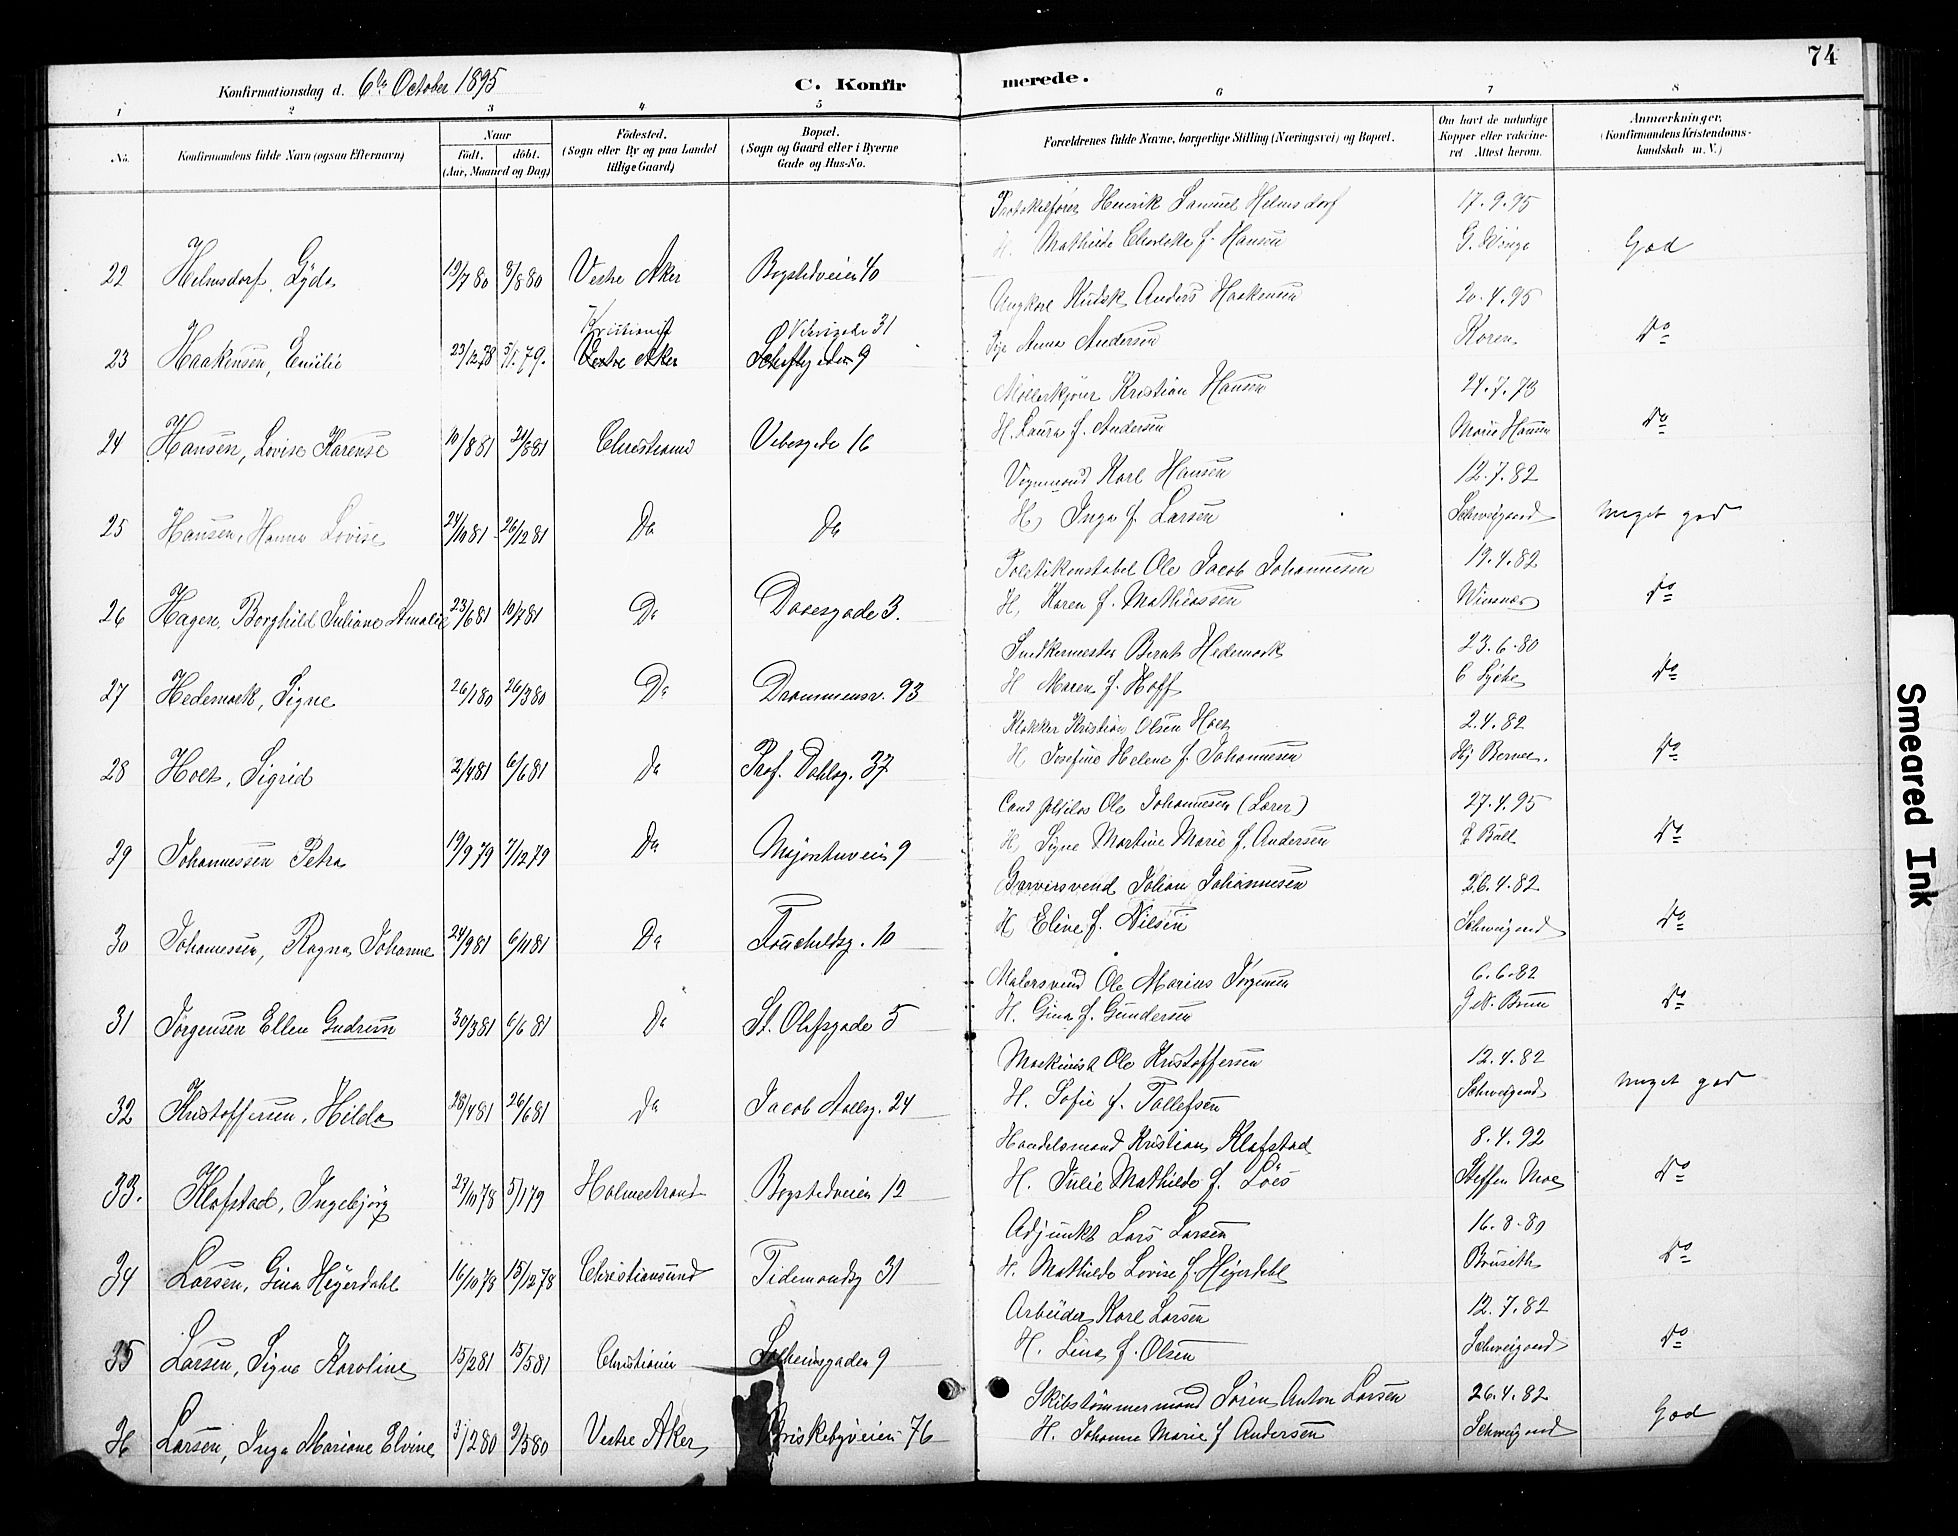 74
Konfirmationsdag d. 6te October 1895 C. Konfirmerede.
1 2 3 4 5 6 7 8
No. Konfirmandens fulde Navn (ogsaa Efternavn) Naar født. døbt. (Aar, Maaned og Dag) Fødested. (Sogn eller By og paa Landet tillige Gaard) Bopæl. (Sogn og Gaard eller i Byerne Gade og Hus-No. Forældrenes fulde Navne, borgerlige Stilling (Næringsvei) og Bopæl. Om havt de naturlige Kopper eller vaccineret Attest herom. Anmærkninger. (Konfirmandens Kristendomskundskab m. V.)
Protokolfører Henrik Samuel Helmsdorf 17.9.95
22 Helmsdorf, Lyda 19/7 80 8/8 80 Vestre Aker Bogstadveien 40 H. Mathilde Charlotte f. Hansen God
Ungkarl Kudsk Anders Haakensen 20.4.95
Kristiania Vibesgade 31
23 Haakensen, Emilie 23/12 78 5/1 79. Vestre Aker 9 Pige Anna Andersen Koren Do
Møllerkjører Kristian Hansen 24.7.73
24 Hansen, Lovise Karense 10/8 81 21/8 81 Christiania Vibesgade 16 H. Laura f. Andersen Marie Hansen Do
Vognmand Karl Hansen 12.7.82
25 Hansen, Hanna Lovise 24/10 81 26/12 81 Do Do H. Inga f. Larsen Schweigaard Meget god
Politikonstabel Ole Jacob Johannesen 19.4.82
26 Hagen, Borghild Juliane Amalie 23/6 81 10/7 81 Do Daasgade 3. H. Karen f. Mathiassen Wiesnes Do
Snedkermester Bernt Hedemark 23.6.80
27 Hedemark, Signe 26/1 80 26/3 80 Do Drammensv. 93 H. Maren f. Hoff Do
Klokker Kristian Olsen Holt 2.4.82
28 Holt, Sigrid 2/4 81 6/6 81 Do Prof. Dahlsg. 37 H. Josefine Helene f. Johannesen Do
Cand philos Ole Johannesen (Lærer) 27.4.95
29 Johannessen Petra 19/9 79 7/12 79 Do Majorstuveien 9 H. Signe Martine Marie f. Andersen Do
Garversvend Johan Johannesen 26.4.82
30 Johannessen, Ragna Johanne 24/9 81 6/11 81 Do Fouchaldsg. 10 H. Eline f. Nilsen Schweigaard Do
Malersvend Ole Marius Jørgensen 6.6.82
31 Jørgensen Ellen Gudrun 30/3 81 6/6 81 Do St. Olafsgade 5 H. Gina f. Gundersen Do
Maskinist Ole Kristoffersen 12.4.82
32 Kristoffersen, Hilda 28/4 81 26/6 81 Do Jacob Aallsg. 24 H. Sofie f. Tollefsen Schweigaard Meget god
Handelsmand Kristian Klafstad 8.4.92
33. Klafstad, Ingebjørg 28/10 78 5/1 79 Holmestrand Bogstadveien 12 H. Julie Mathilde f. Steffen Moe Do
Adjunkt Lars Larsen 16.8.80
34 Larsen, Gina Heyerdahl 16/10 78 15/12 78 Christiansund Tidemandsg 31 H. Mathilde Lovise f. Heyerdahl Bruseth Do
Arbeider Karl Larsen 12.7.82
35 Larsen, Signe Karoline 15/2 81 15/5 81 Christiania Solheimsgaden 9 H. Lina f. Olsen Schweigaard Do
Skibstømmermand Søren Anton Larsen 26.4.82
36 Larsen, Inga Mariane Elvine 3/2 80 9/5 80 Vestre Aker Briskebyveien 76 H. Johanne Marie f Andersen Schweigaard God
Smeared Ink